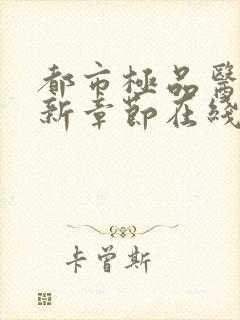 都市極品醫
新章節在綫
卡曾斯